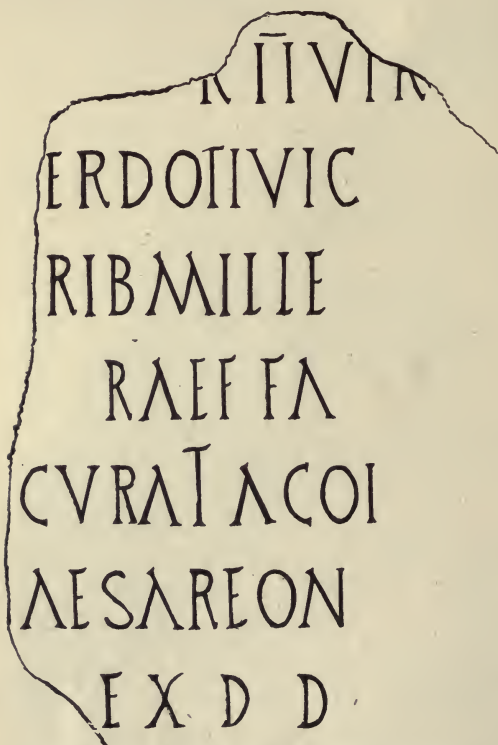 R IIVIR
ERDOTIVIC
RIBMILIE
RAEF FA
CVRAT ACOI
AESAREON
EX D D